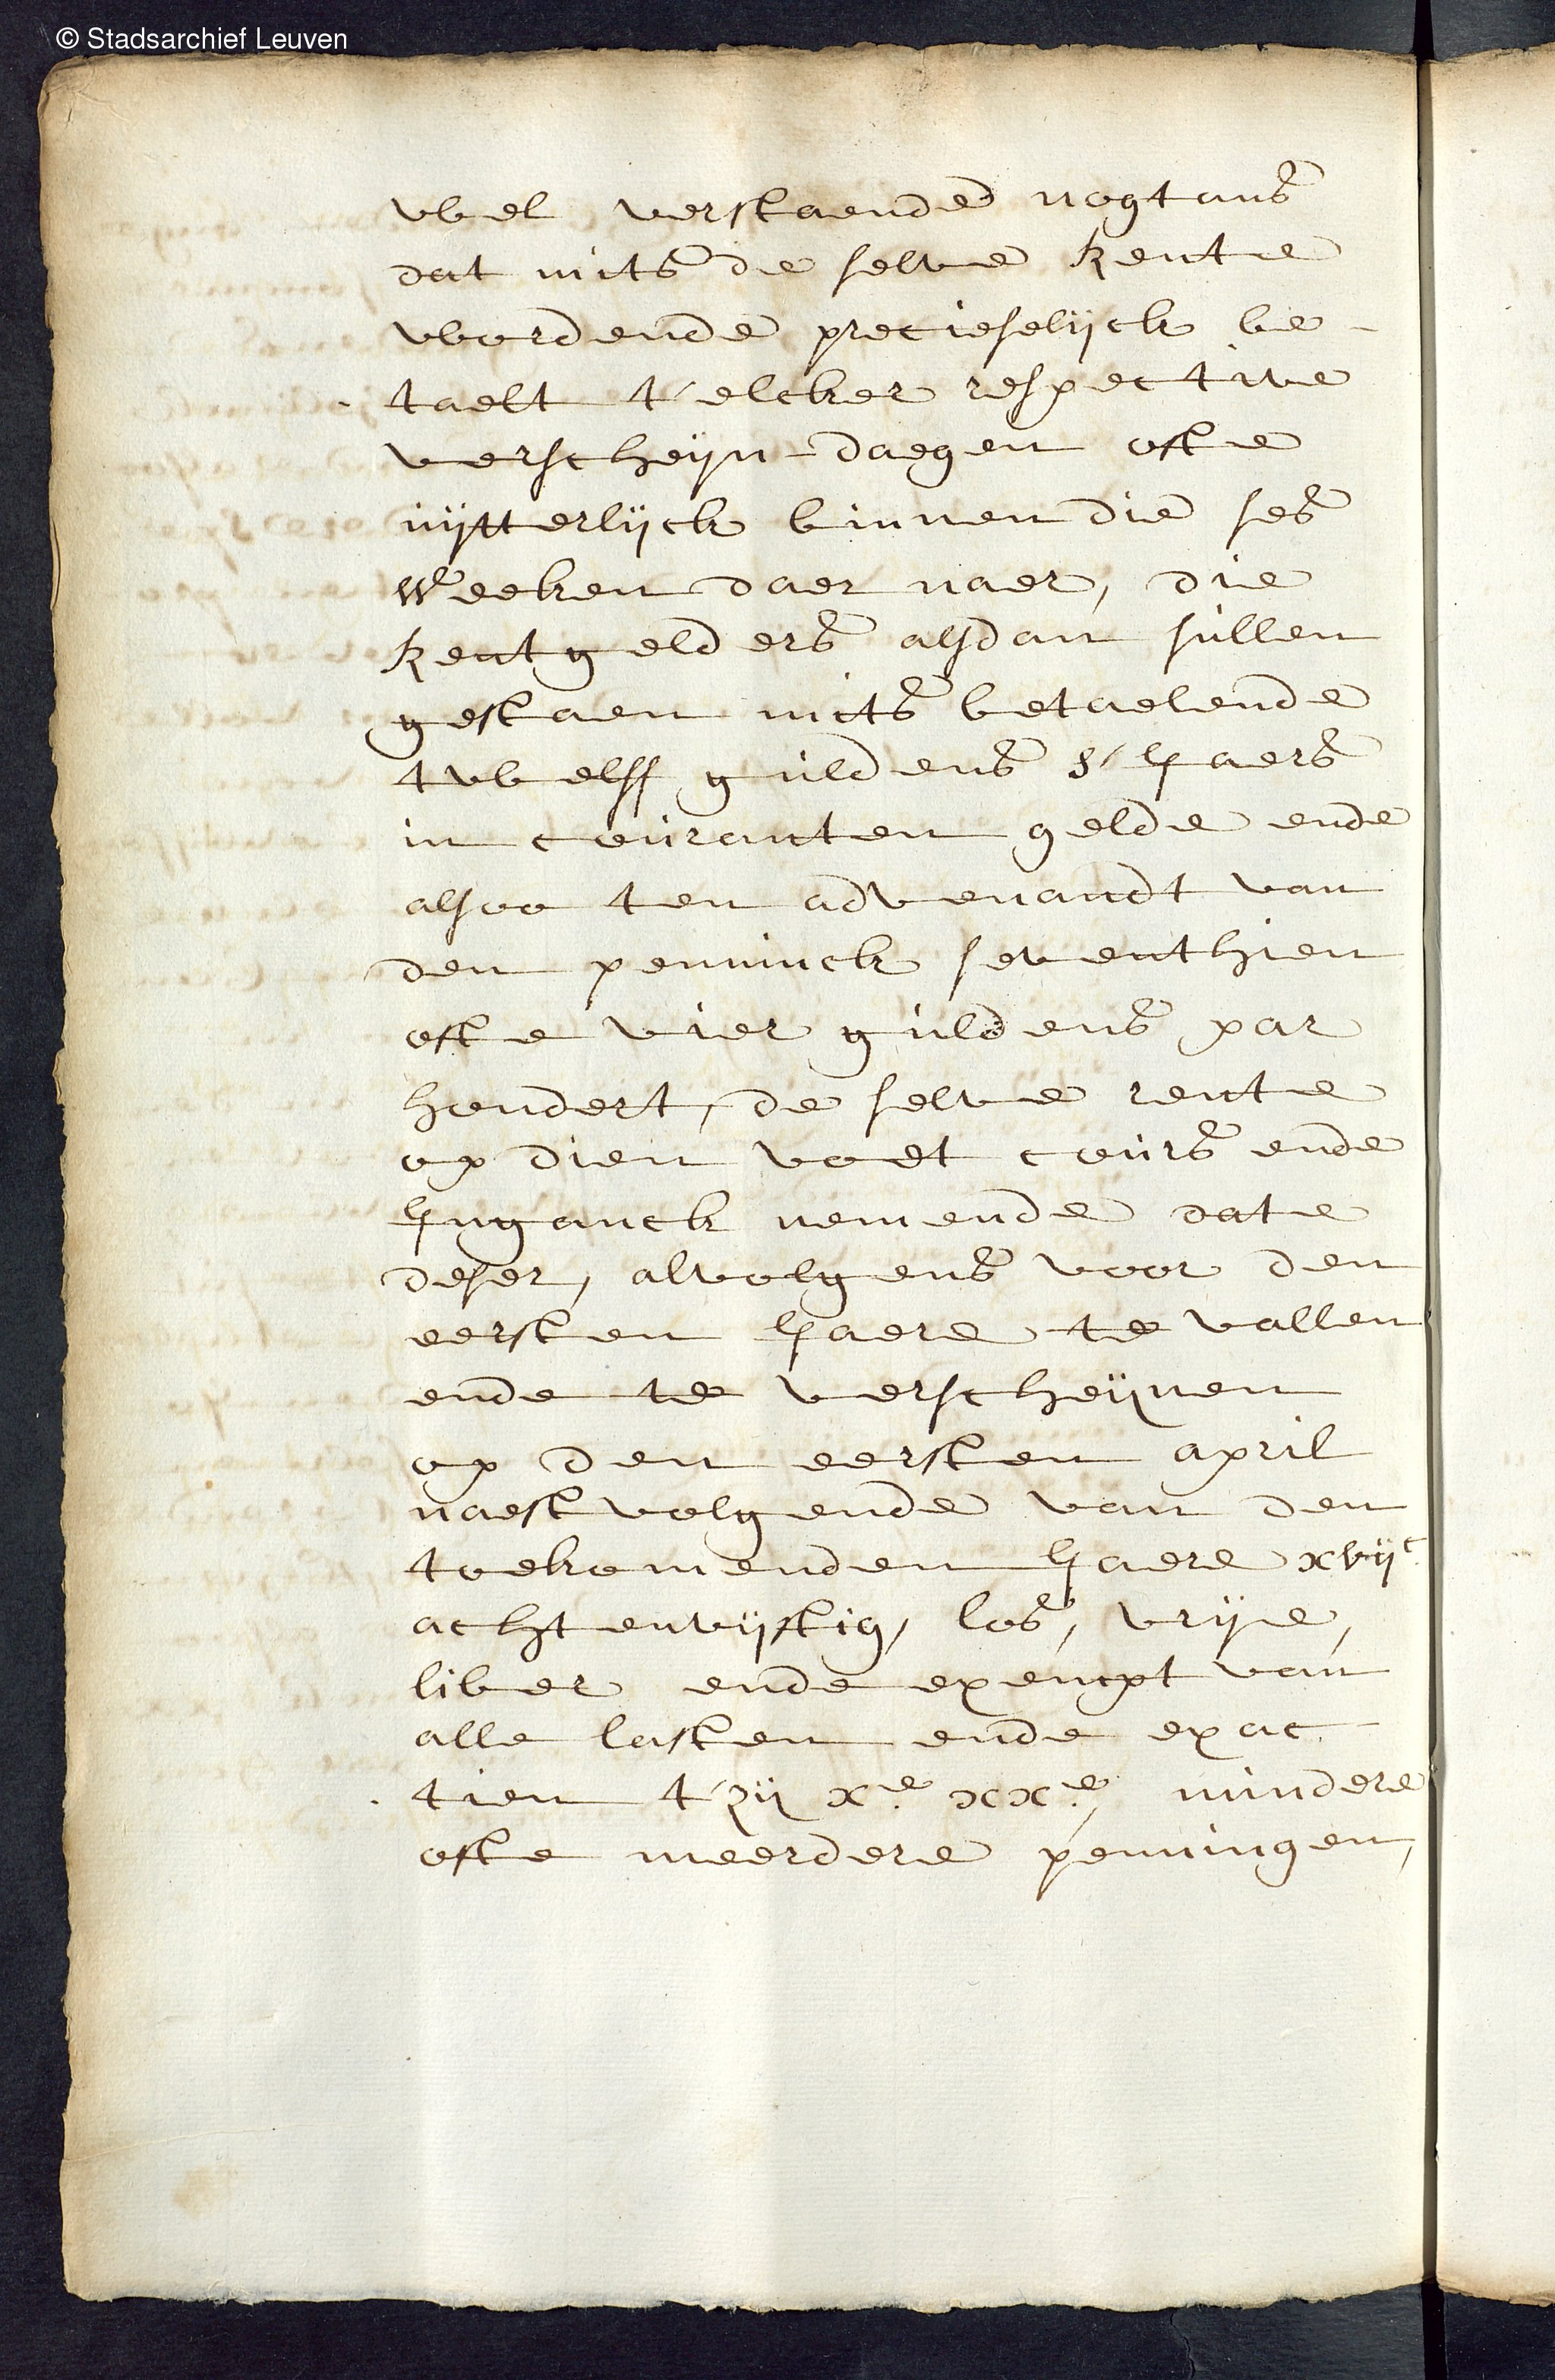 © Stadsarchief Leuven
wel verstaende nogtans
dat mits de selve Rente
wordende preciselijck be-
taelt t'elcker respective
verscheijn-daegen ofte
uijtterlijck binnen die ses
weeken daer naer, die
Rentgelders alsdan sullen
gestaen mits betaelende
twelff guldens s'Jaers
in couranten gelde ende
alsoo ten advenandt van
den penninck seventhien
ofte vier guldens par
hondert, de selve rente
op dien voet cours ende
Inganck nemende date
deser, alvolgens voor den
eersten Jaere te vallen
ende te verscheijnen
op den eersten april
naestvolgende van den
toekomenden Jaere xvijc
achtenvijftig, los, vrije,
liber ende exempt van
alle lasten ende exac
tien t'zij xe. xxe., mindere
ofte meerdere penningen,